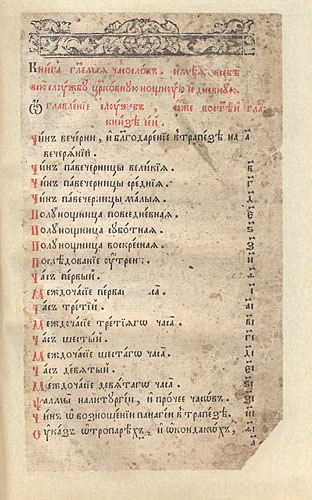 Кни́га гл҃емаѧ часосло́въ. имѣ́ѧ всебѣ̀
всю̀ слꙋ́жбꙋ црко́внꙋю нощнꙋ́ю и дневнꙋ́ю.
Ѡ҆главле́нїе слꙋ́жебъ, ꙗ҆́же восте́й гла́
кни́зѣ се́й.
Чи́нъ вече́рни, и҆ благодаре́нїе ѹ҆трапе́зѣ на а
вечерѧ́нїи.
Чи́нъ павече́рницы вели́кїѧ. в
Чи́нъ павече́рницы сре́днїѧ. г
Чи́нъ павече́рницы ма́лыѧ. д
Полꙋ́нощница повседне́внаѧ. е
Полꙋ́нощница сꙋбо́тнаѧ. ѕ
Полꙋ́нощница воскре́снаѧ. з
Послѣ́дованїе ѹ҆́трени: и
Ча́съ пе́рвый. ѳ
Междоча́сїе перва са. і
Ча́съ тре́тїй. аі
Междоча́сїе тре́тїѧгѡ часа̀. ві
Ча́съ шесты́й. гі
Междоча́сїе шеста́гѡ часа̀. ді
Ча́съ девѧ́тый. еі
Междоча́сїе девѧ́тагѡ часа̀. ѕі
Ѱалмы̀ налитꙋргі́и, и҆ про́чее часѡ́въ. зі
Чи́нъ ѡ҆ возноше́нїи панагі́и ѹ҆трапе́зѣ. иі
Оу҆ка́зъ ѡ҆тропарѣ́хъ, и҆ ѡ҆кондакѡ́хъ, ѳі